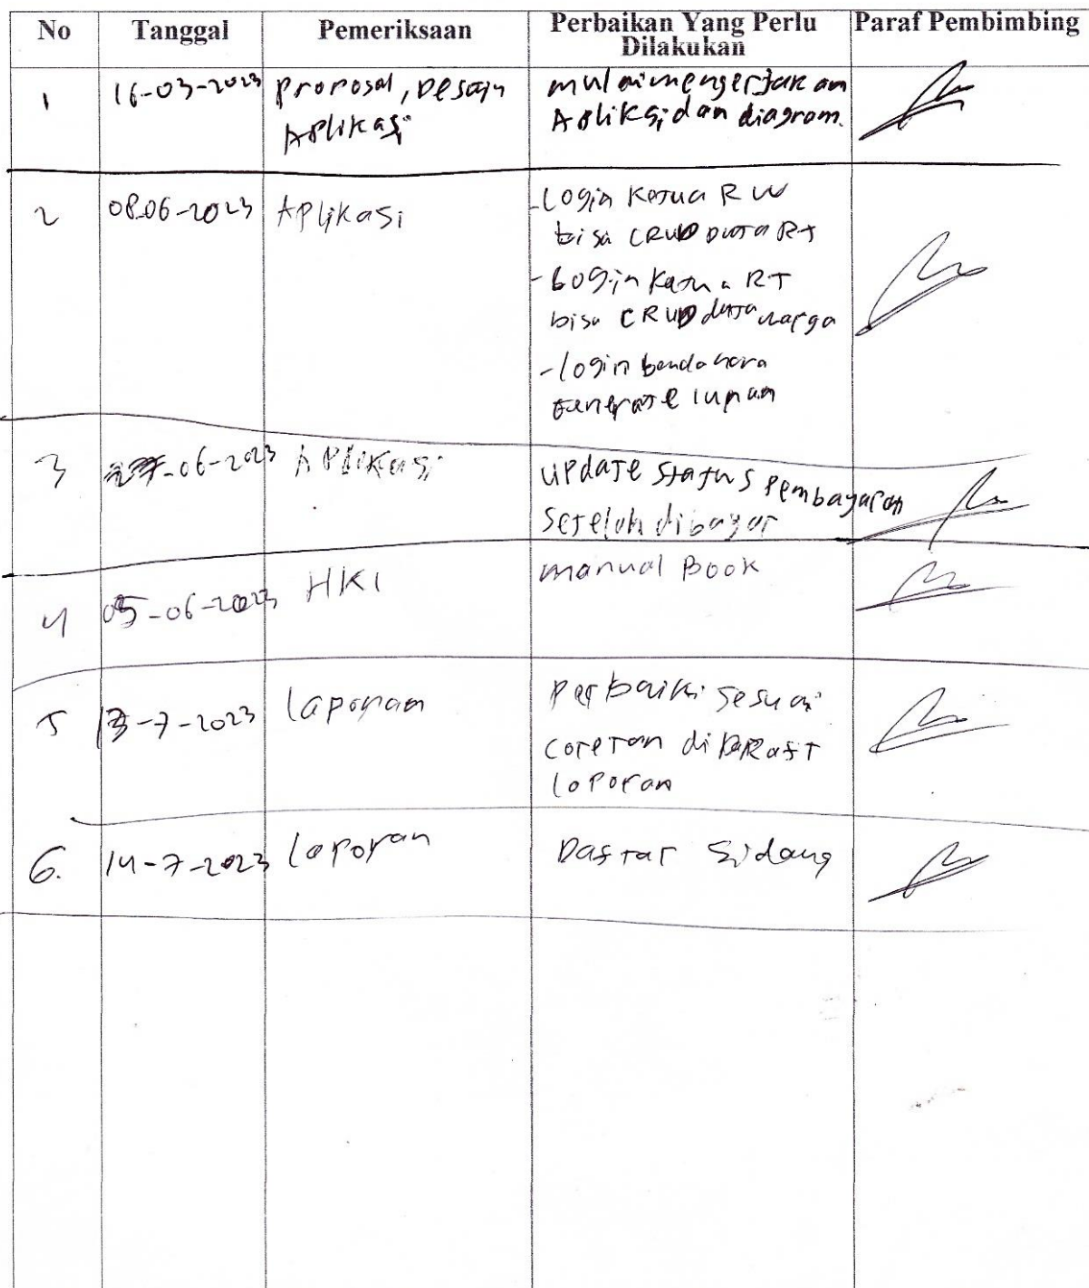 No Tanggal Pemeriksaan Perbaikan Yang Perlu Dilakukan Paraf Pembimbing
1 16-03-2023 Proposal, Desain mulai mengerjakan
Aplikasi Aplikasi dan diagram.
2 08-06-2023 Aplikasi - Login Ketua RW
bisa CRUD Data RT
- Login Ketua RT
bisa CRUD data warga
- login bendahara
generate iuran
3 27-06-2023 Aplikasi update status pembayaran
setelah dibayar
4 05-06-2023 HKI manual Book
5 13-7-2023 laporan Perbaiki sesuai
coretan di DRaft
laporan
6. 14-7-2023 laporan Daftar Sidang